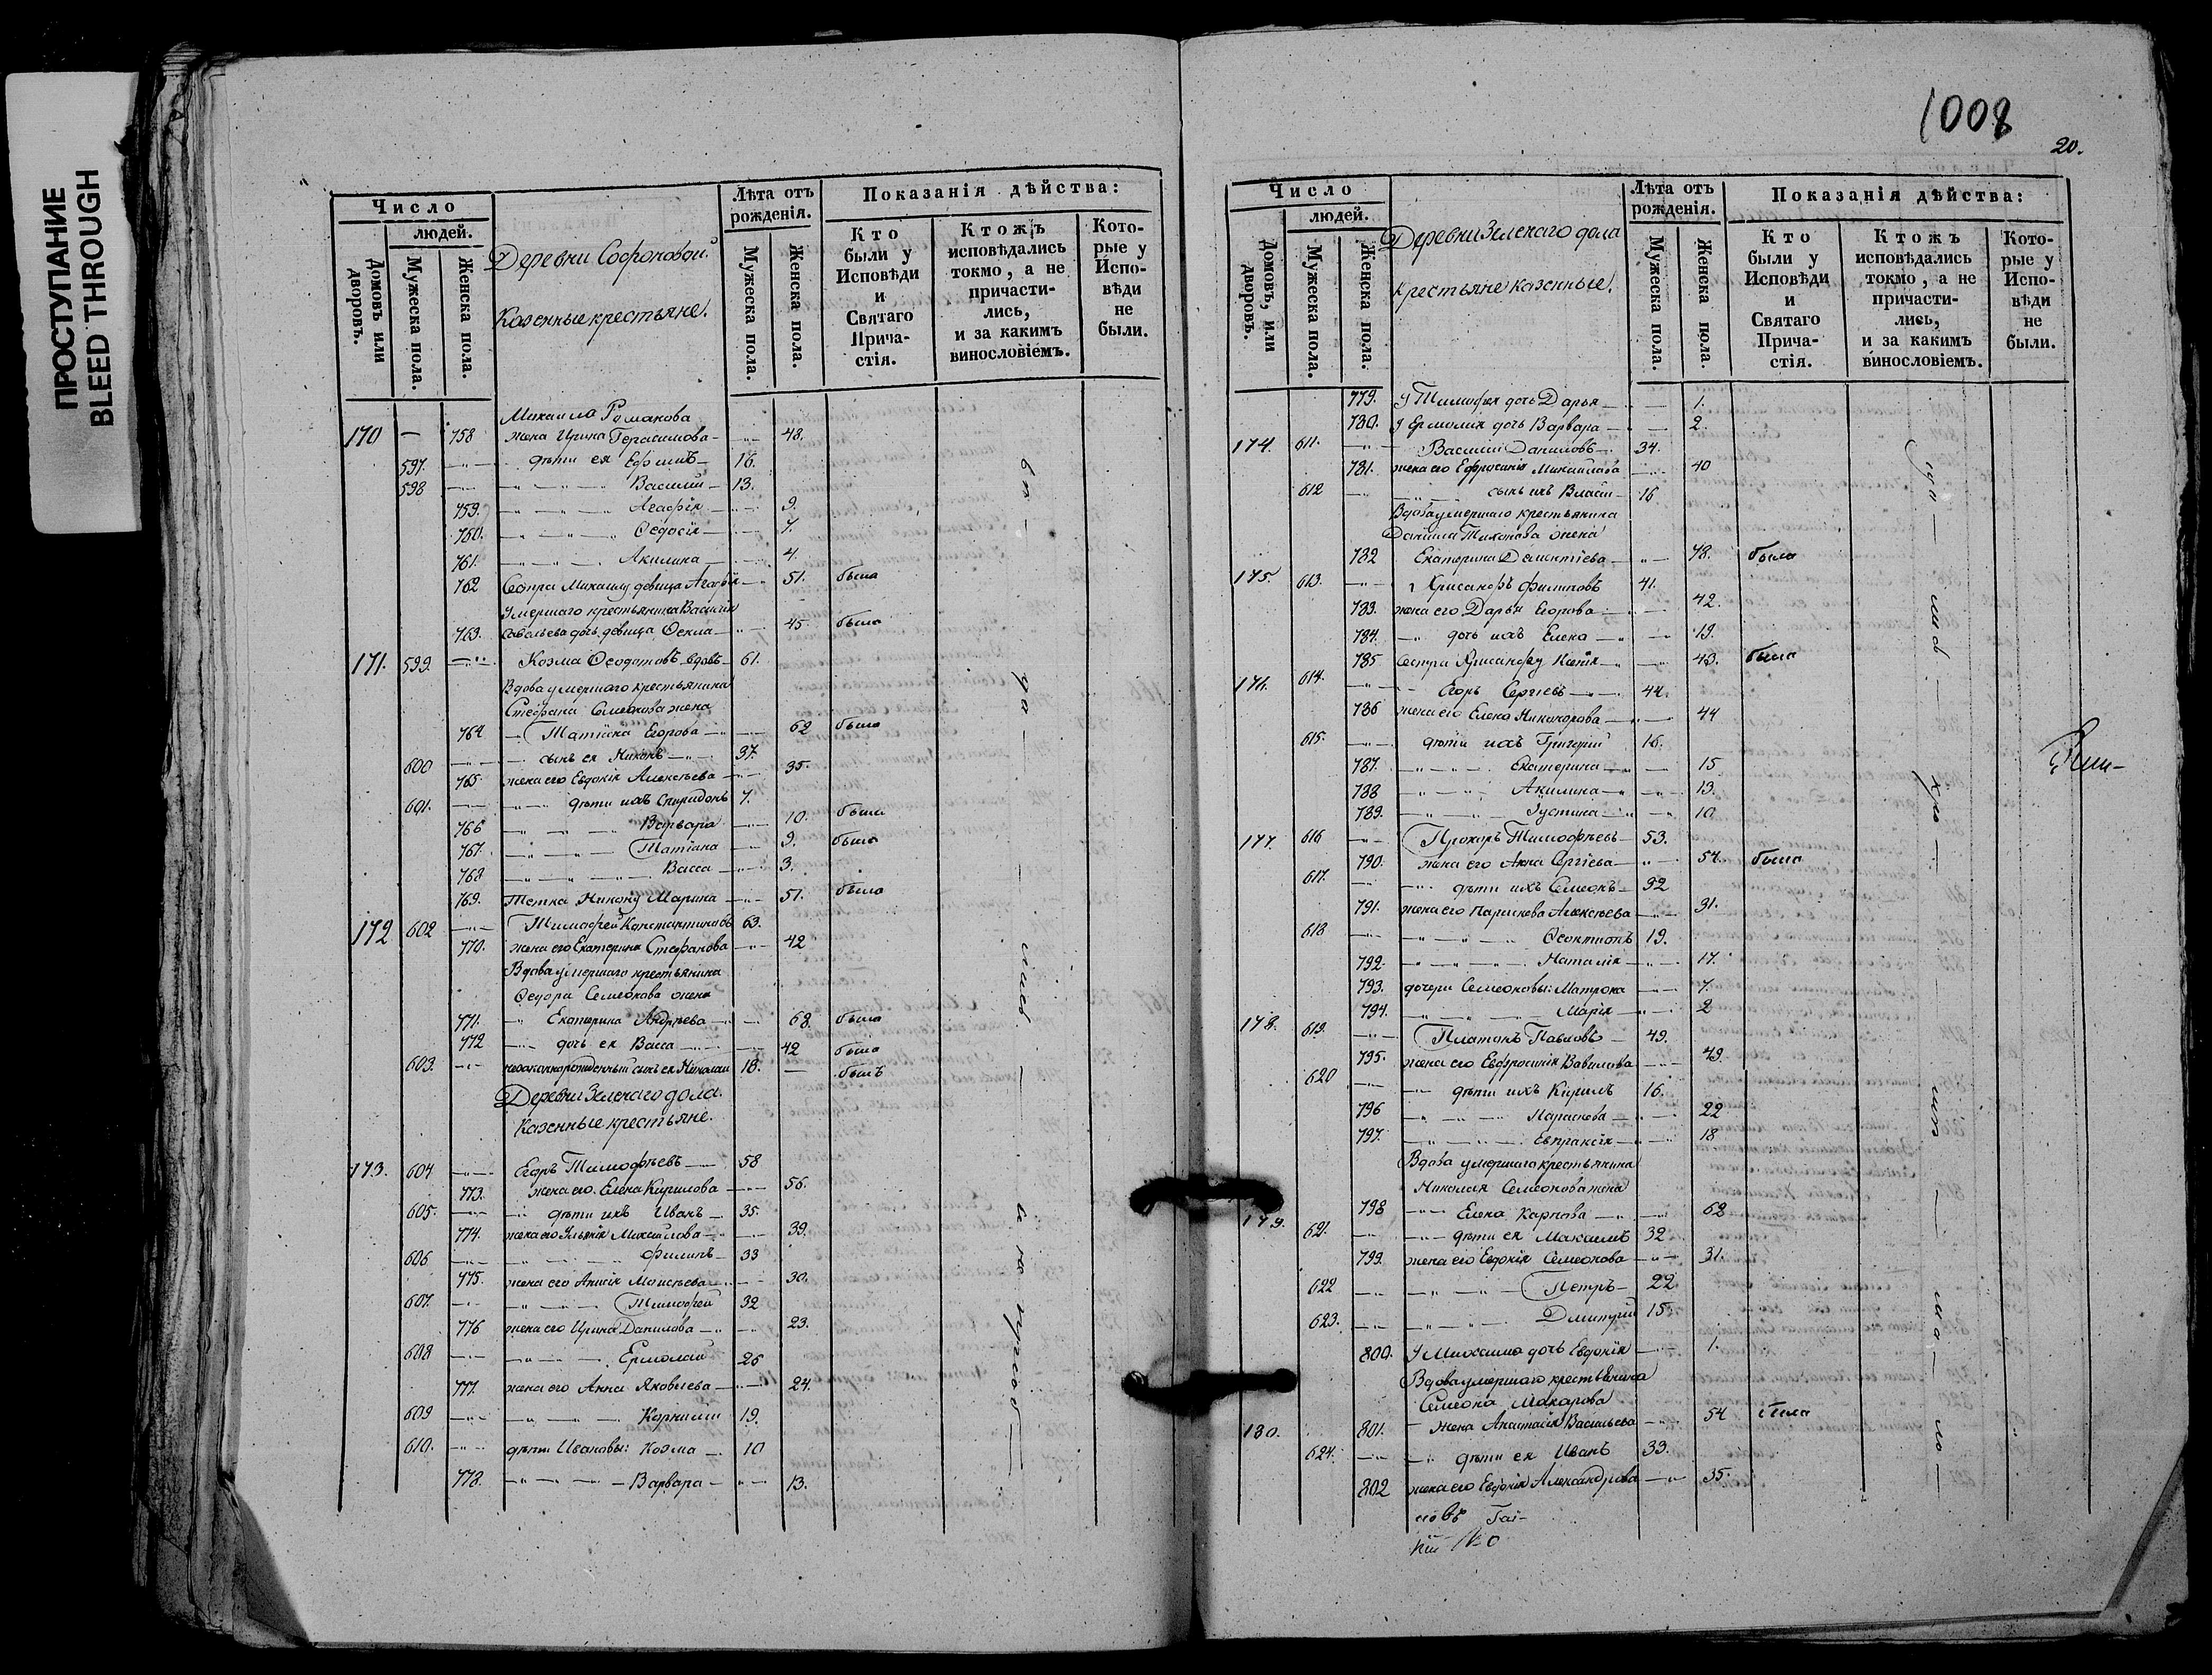 ПРОСТУПАНИЕ
BLEED THROUGH
Число
людей.
Домовъ или дворовъ.
Мужеска пола.
Женска пола.
Деревни Софроновой.
Казенные крестьяне.
Лѣта отъ рожденія.
Мужеска пола.
Женска пола.
Показанія дѣйства:
Кто были у Исповѣди и Святаго Причастія.
Ктожъ исповѣдались токмо, а не причастились, и за какимъ винословіемъ.
Которые у Исповѣди не были.
Михаила Романова
170 — 758 жена Ирина Герасимова 48.
597. дѣти ея Ефимъ 16.
598 Василій 13.
759. Агафія 9.
760. Ѳедосія 7.
761. Акилина 4.
762 Сестра Михаилу девица Агафія 51. была
Умершаго крестьянина Василія
763. Савельева дочь девица Ѳекла 45. была
171. 599. Козма Ѳеодотовъ вдовъ 61.
Вдова умершаго крестьянина
Стефана Семеонова жена
764 Татіана Егорова 62 была
600 сынъ ея Никонъ 37.
765. жена его Евдокія Алексѣева 35.
601. дѣти ихъ Спиридонъ 7.
766 Варвара 10. была
767. Татіана 9. была
768 Васса 3.
769. Тетка Никону Марина 51. была
172 602 Тимофей Константиновъ 63.
770. жена его Екатерина Стефанова 42
Вдова умершаго крестьянина
Ѳедора Семеонова жена
771. Екатерина Андреева 68. была
772 дочь ея Васса 42 была
603. незаконнорожденный сынъ ея Николай 18. — былъ
Деревни Зеленаго дола.
Казенные крестьяне.
173. 604 Егоръ Тимофѣевъ 58
773. жена его Елена Кирилова 56.
605. дѣти ихъ Иванъ 35.
774. жена его Ульянія Михайлова 39.
606 Филипъ 33
775. жена его Анисія Моисеева 30.
607. Тимофей 32
776 жена его Ирина Данилова 23.
608 Ермолай 26
777. жена его Анна Яковлева 24.
609 Корнилій 19.
610. дѣти Ивановы: Козма 10
778. Варвара 13.
1008
20.
Число
людей.
Домовъ, или дворовъ.
Мужеска пола.
Женска пола.
Деревни Зеленаго дола
крестьяне казенные.
Лѣта отъ рожденія.
Мужеска пола.
Женска пола.
Показанія дѣйства:
Кто были у Исповѣди и Святаго Причастія.
Ктожъ исповѣдались токмо, а не причастились, и за какимъ винословіемъ.
Которые у Исповѣди не были.
779. У Тимофея дочь Дарья 1.
780. У Ермолая дочь Варвара 2.
174. 611. Василій Даниловъ 34.
781. жена его Ефросинія Михайлова 40
612 сынъ ихъ Власій 16
Вдова умершаго крестьянина
Даніила Тихонова жена
782 Екатерина Дементіева 78. была
175. 613. Хрисанфъ Филиповъ 41.
783. жена его Дарья Егорова 42.
784. дочь ихъ Елена 19.
785 Сестра Хрисанфу Ксенія 43. была
176. 614. Егоръ Сергіевъ 44.
786 жена его Елена Никанорова 44
615. дѣти ихъ Григорій 16.
787. Екатерина 15
788 Акилина 13.
789. Іустина 10
177. 616 Прохоръ Тимофѣевъ 53.
790. жена его Анна Сергіева 54. была
617. дѣти ихъ Семеонъ 32
791. жена его Параскева Алексѣева 31.
618 Ѳеоктистъ 19.
792. Наталія 17.
793. дочери Семеоновы: Матрона 7.
794. Марія 2
178. 619. Платонъ Павловъ 49.
795. жена его Евфросинія Вавилова 49.
620 дѣти ихъ Кирилъ 16.
796 Параскева 22
797. Евпраксія 18
Вдова умершаго крестьянина
Николая Семеонова жена
179. 798 Елена Карпова 62
621. дѣти ея Максимъ 32
799. жена его Евдокія Семеонова 31.
622 Петръ 22
623. Дмитрій 15.
800. У Максима дочь Евдокія 1.
Вдова умершаго крестьянина
Семеона Макарова
180. 801. жена Анастасія Васильева 54 была
624. дѣти ея Иванъ 33.
802 жена его Евдокія Александрова 35.